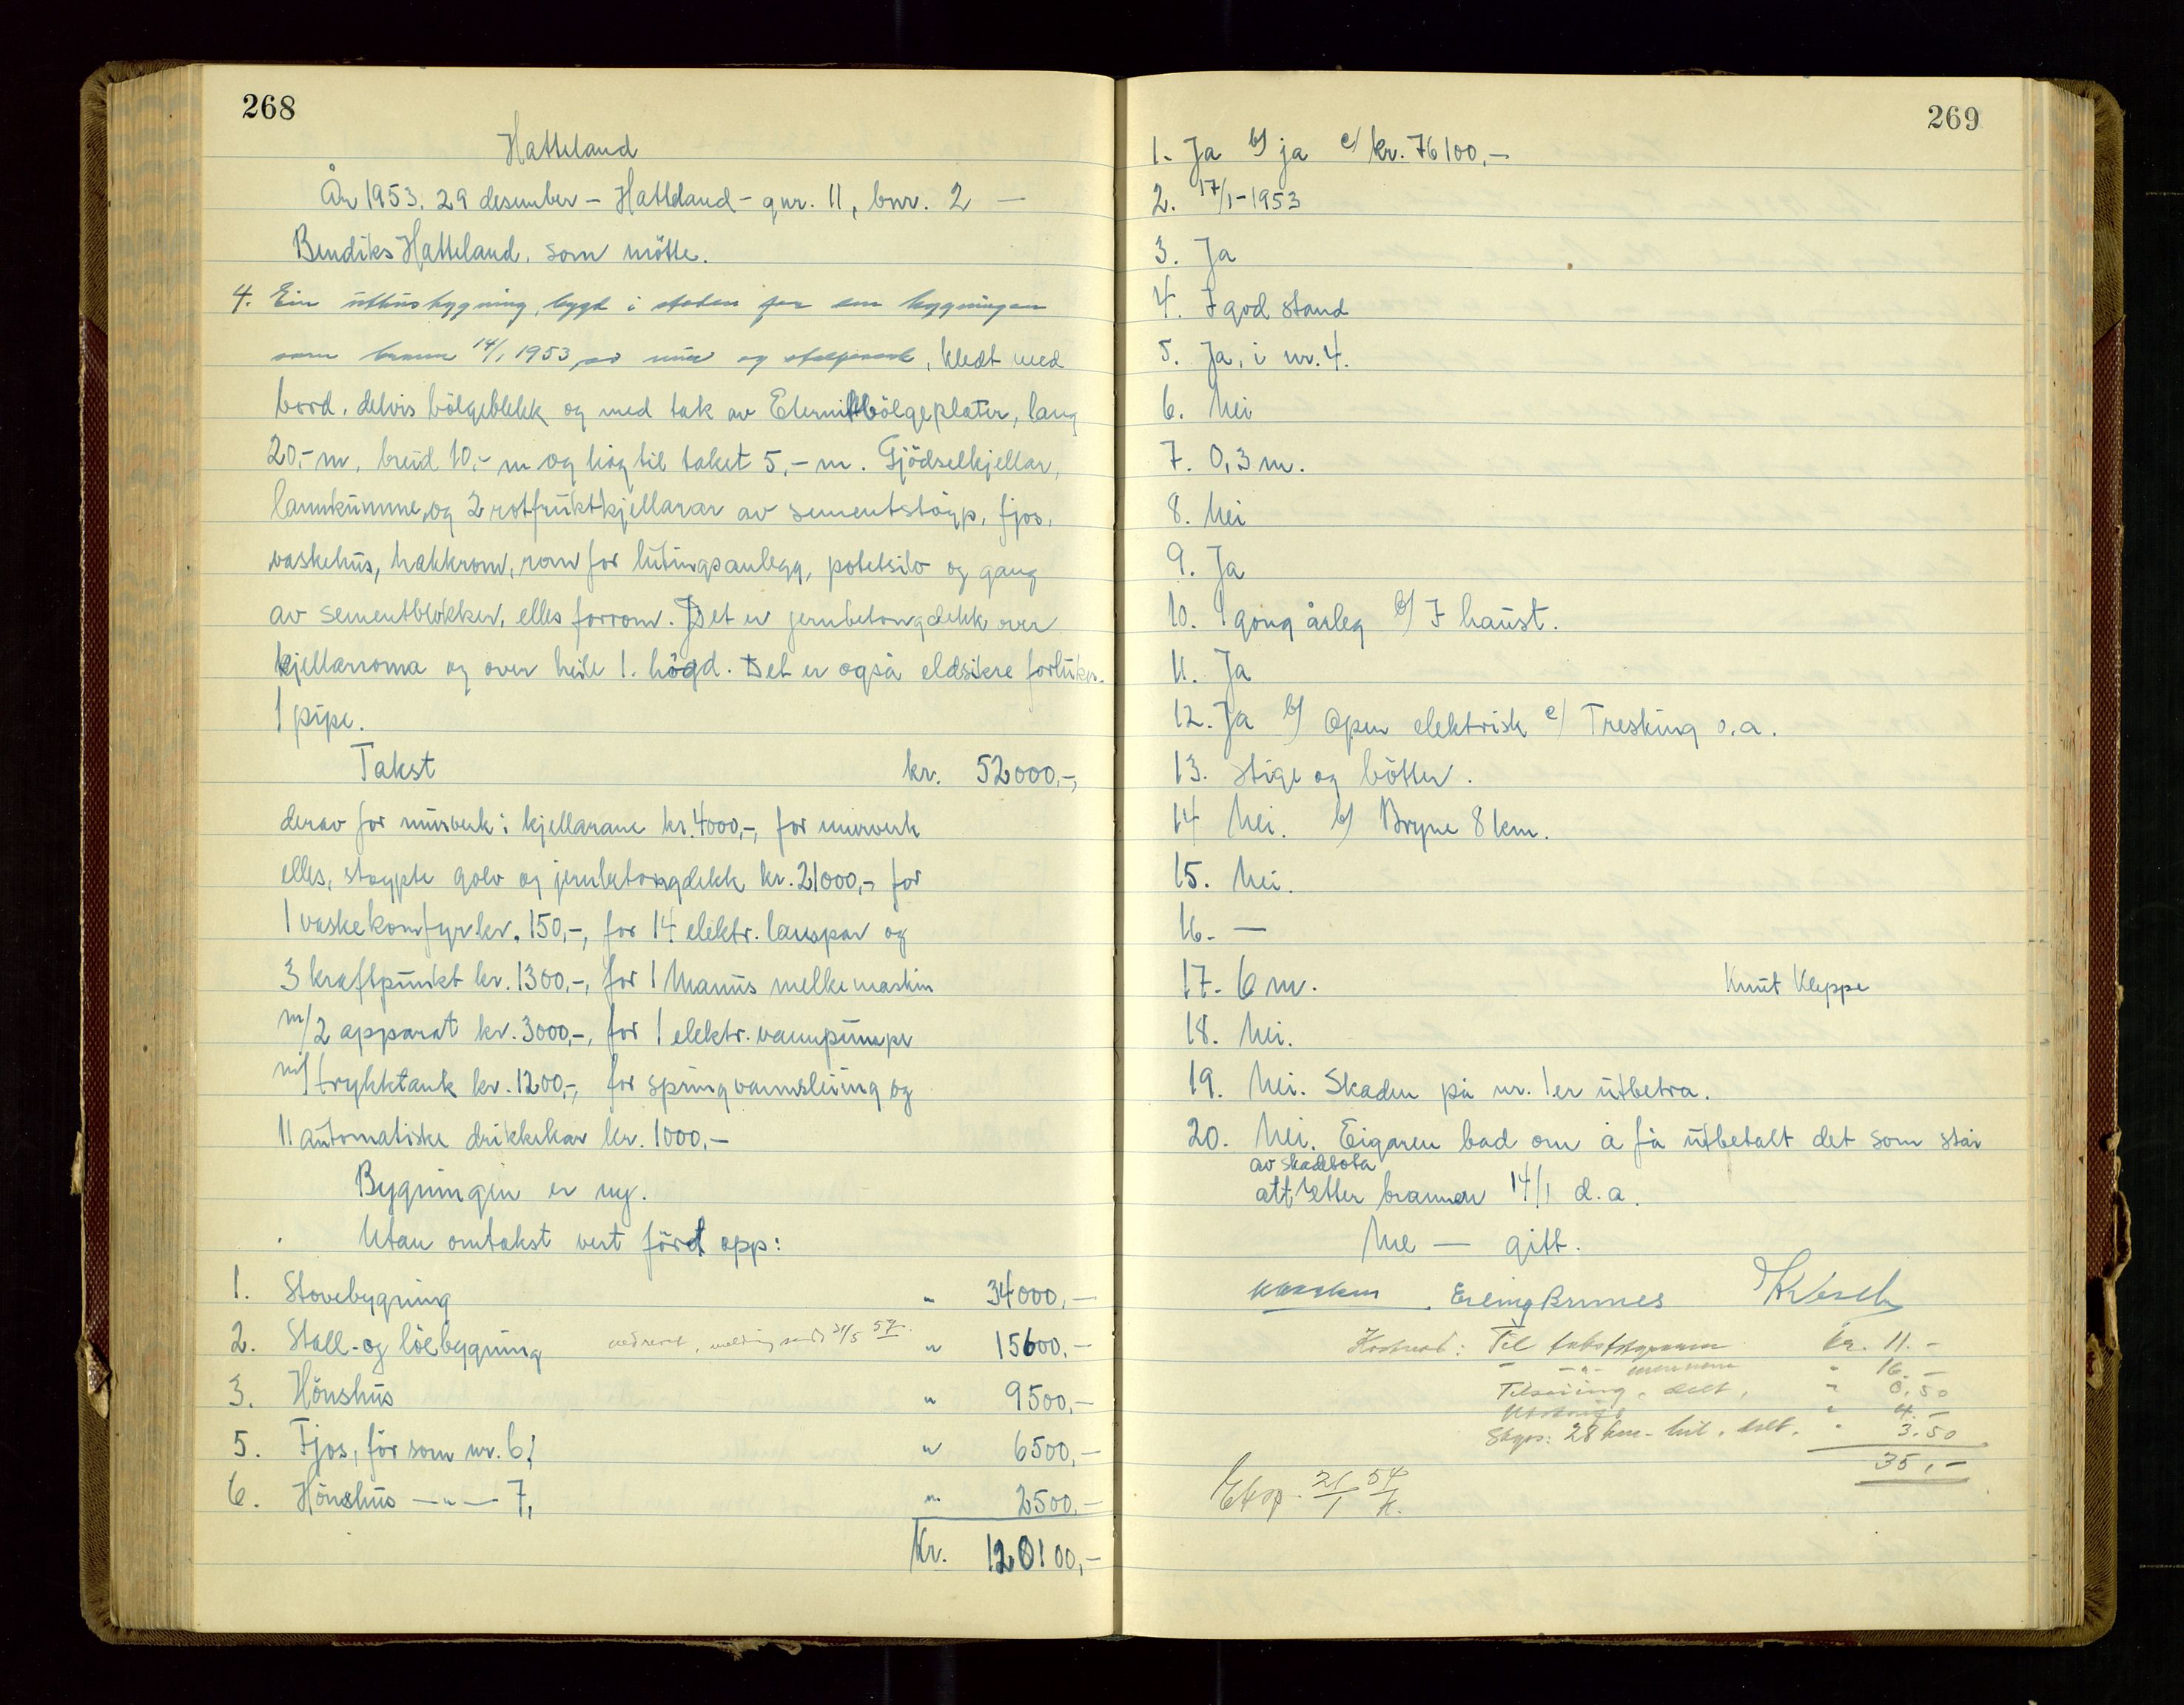 268
Hatteland
År 1953. 29 desember - Hatteland - gnr. 11, bnr. 2 —
Bendiks Hatteland, som mötte.
4. Ein uthusbygning, bygt i staden for den bygningen
som brann 14/1 1953 av mur og stolpeverk, kledt med
bord, delvis bölgeblekk og med tak av Eternitbölgeplater, lang
20,- m, breid 10,- m og höig til taket 5,- m. Gjödselkjellar,
lannkumme, og 2 rotfruktkjellarar av sementstöyp, fjos,
vaskehus, hakkrom, rom for lutingsanlegg, potetsilo og gang
av sementblokker, elles forrom. Det er jernbetongdekk over
kjellarroma og over heile 1. högd. Det er også eldsikre forluker.
1 pipe.
Takst kr. 52000,-,
derav for murverk i kjellarane kr. 4000,-, for murverk
elles, stoypte golv og jernbetongdekk kr. 21000,-, for
1 vaskekomfyr kr. 150,-, for 14 elektr. lampar og
3 kraftpunkt kr. 1300,-, for 1 Manus melkemaskin
m/2 apparat kr. 3000,-, for 1 elektr. vannpumpe
m/trykktank kr. 1200,-, for springvannsleiing og
11 automatiske drikkekar kr. 1000,-
Bygningen er ny.
Utan omtakst vert fört opp:
1. Stovebygning " 34000,-
2. Stall- og löebygning nedrevet, melding sendt 21/5 57. " 15600,-
3. Hönshus " 9500,-
5. Fjos, för som nr. 6, " 6500,-
6. Hönshus — " — 7, " 2500,-
Kr. 120100,-
269
1. Ja b/ ja c/ kr. 76100,-
2. 17/1-1953
3. Ja
4. I god stand
5. Ja, i nr. 4.
6. Nei
7. 0,3 m.
8. Nei
9. Ja
10. 1 gong årleg b/ I haust.
11. Ja
12. Ja b/ Open elektrisk c/ Tresking o.a.
13. Stige og bötter.
14 Nei. b/ Bryne 8 km.
15. Nei.
16. —
17. 6 m. Knut Kleppe
18. Nei.
19. Nei. Skaden på nr. 1 er utbetra.
20. Nei. Eigaren bad om å få utbetalt det som står
av skadebota
att etter brannen 14/1 d.a.
Me — gitt.
Erling Brunes
Kostnad: Til takstmennene kr. 11.-
- " - " 16.-
Tilseiing, delt, " 0,50
" 4.-
Skyss: 28 km. bil, delt. " 3.50
35,-
Eksp. 21/1 54